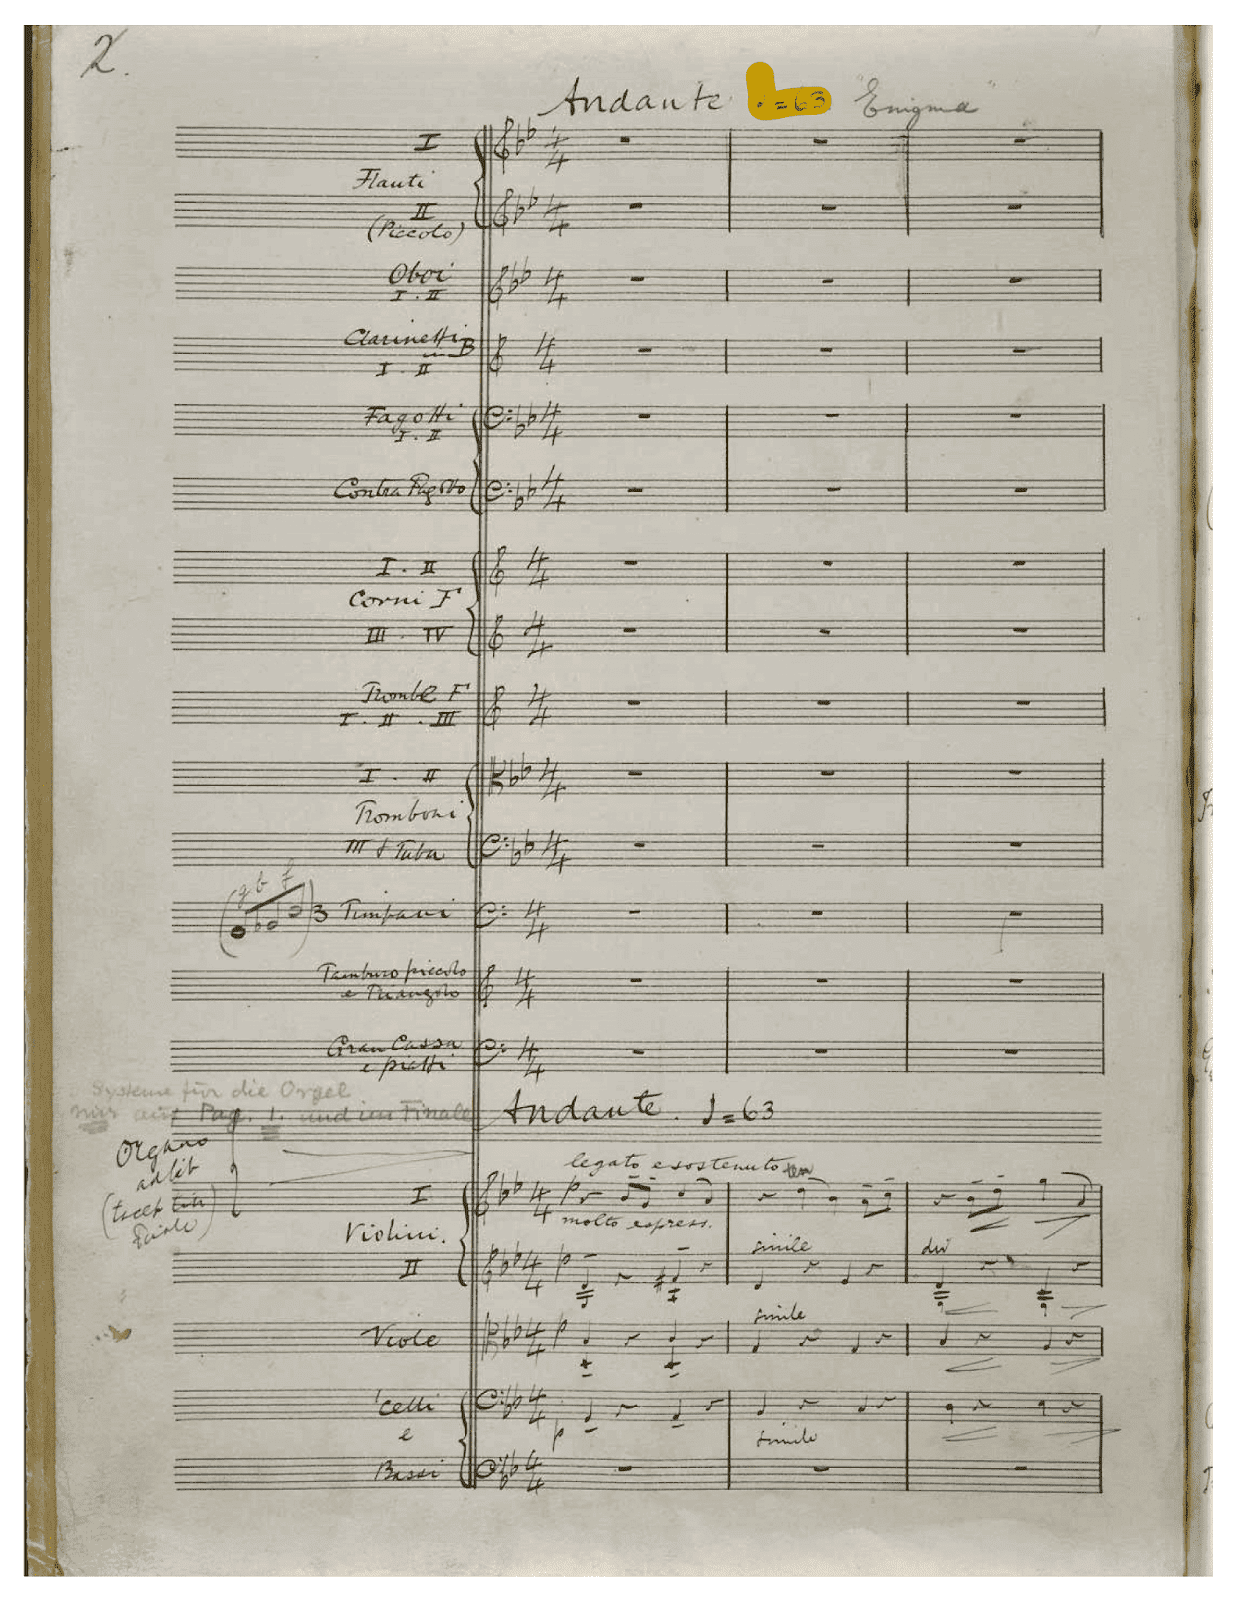 2.
Andante ♩=63 "Enigma"
I
Flauti
II
(Piccolo)
Oboi
I . II
Clarinetti
in B
I . II
Fagotti
I . II
Contra Fagotto
I . II
Corni F
III . IV
Trombe F
I . II . III
I . II
Tromboni
III & Tuba
(g b f) 3 Timpani
Tamburo piccolo
e Triangolo
Gran Cassa
e piatti
Systeme für die Orgel
nur auf Pag. 1. und im Finale
Andante. ♩=63
Organo
ad lib
(tacet
Finale)
legato e sostenuto ten
p
I
molto express.
Violini.
simile
div
II
p
simile
Viole
p
'Celli
e
p
simile
Bassi